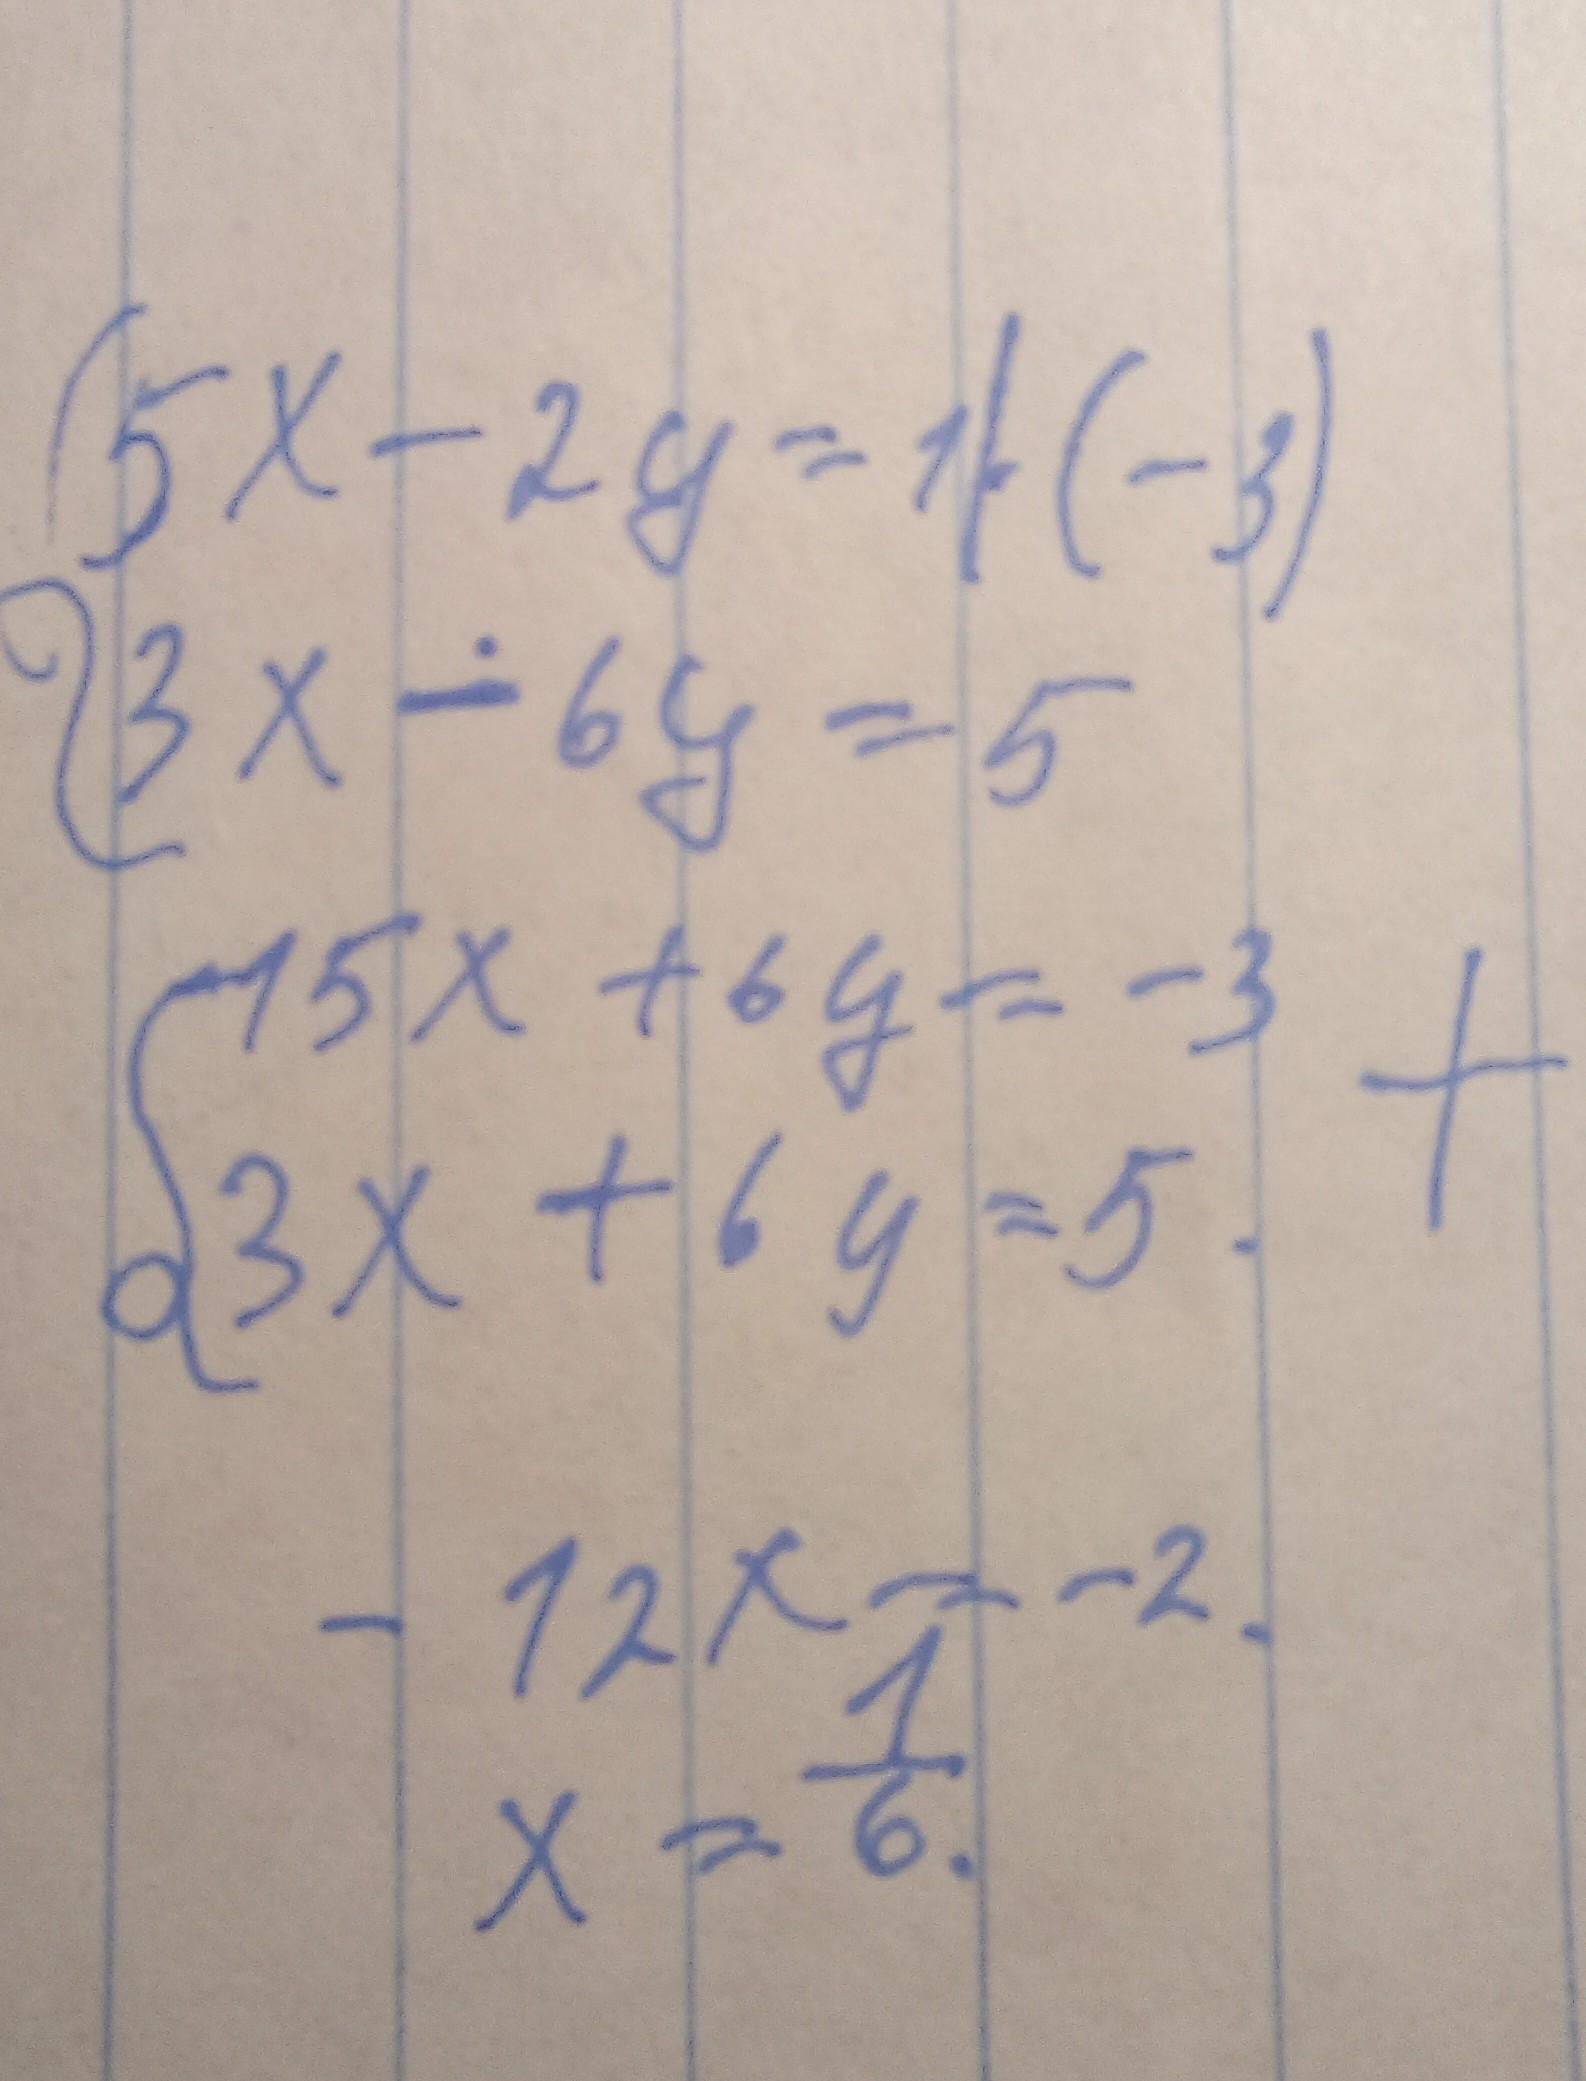 5x - 2y = 1 | · (-3)
3x - 6y = 5
-15x + 6y = -3
+
3x + 6y = 5.
- 12x = -2.
x = 1/6.